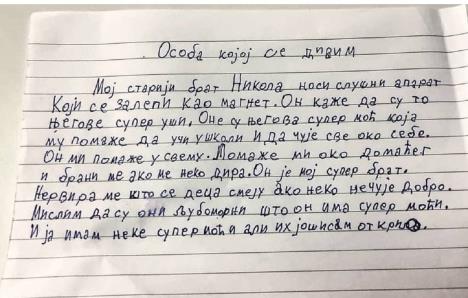 Особа којој се дивим
Мој старији брат Никола носи слушни апарат
Који се залепи као магнет. Он каже да су то
његове супер уши. Оне су његова супер моћ која
му помаже да учи у школи и да чује све око себе.
Он ми помаже у свему. Помаже ми око домаћег
и брани ме ако ме неко дира. Он је мој супер брат.
Нервира ме што се деца смеју ако неко нечује добро.
Мислим да су они љубоморни што он има супер моћи.
И ја имам неке супер моћи али их још нисам